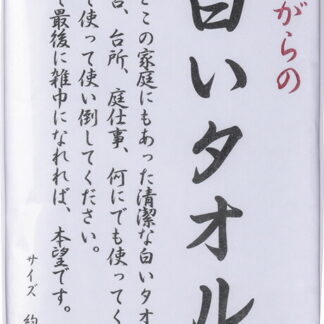 がらの
白いタオル
どこの家庭にもあった清潔な白いタオ
台、台所、庭仕事、何にでも使ってく
て使って使い倒してください。
て最後に雑巾になれれば、本望です。
サイズ 約